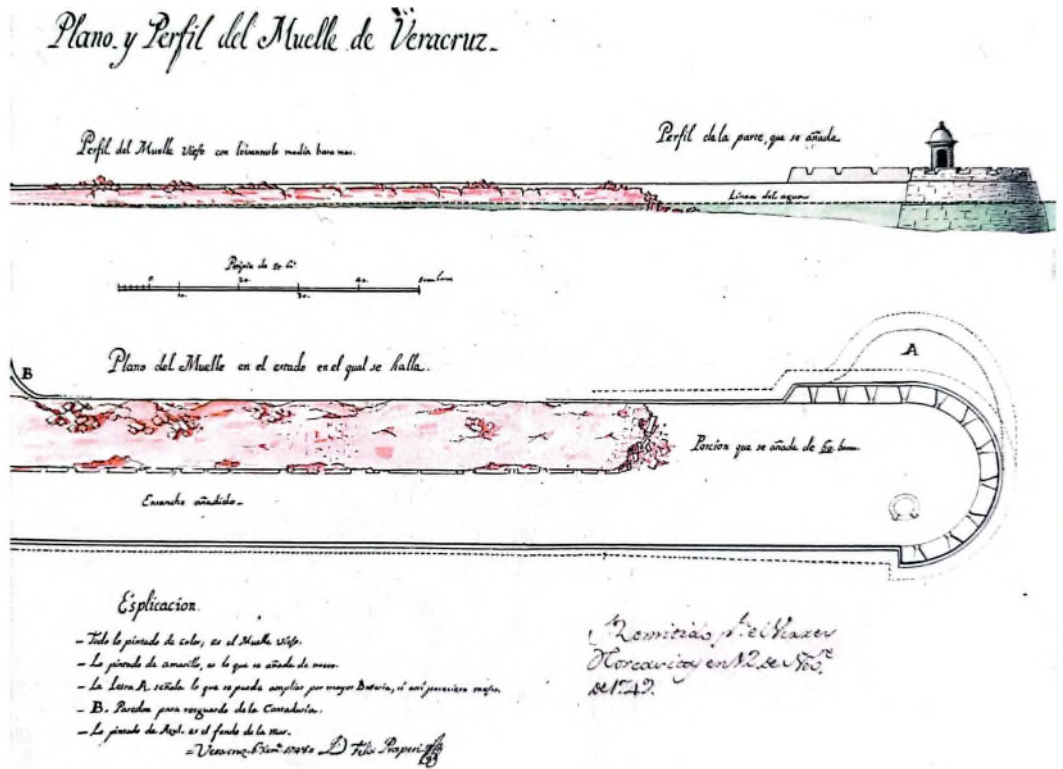 Plano. y Perfil del Muelle de Veracruz.
Perfil del Muelle viejo con
Perfil de la parte, que se añade.
Linea del agua
Pitipie de
0. 20. 40.
10. 30.
B
Plano del Muelle en el estado en el qual se halla.
A
Porcion que se añade de 60
Ensanche añadido.
Esplicacion.
- Todo lo pintado de color, es el Muelle viejo.
- Lo pintado de amarillo, es lo que se añade de nuevo.
- La Letra A. señala lo que se puede ampliar por mayor Bateria, si asi pareciere mejor.
- B. Paredon para resguardo de la Contaduria.
- Lo pintado de Azul. es el fondo de la mar.
= Veracruz D. Felix Prosperi
Remitido
en 12 de Nov.re
de 1749.